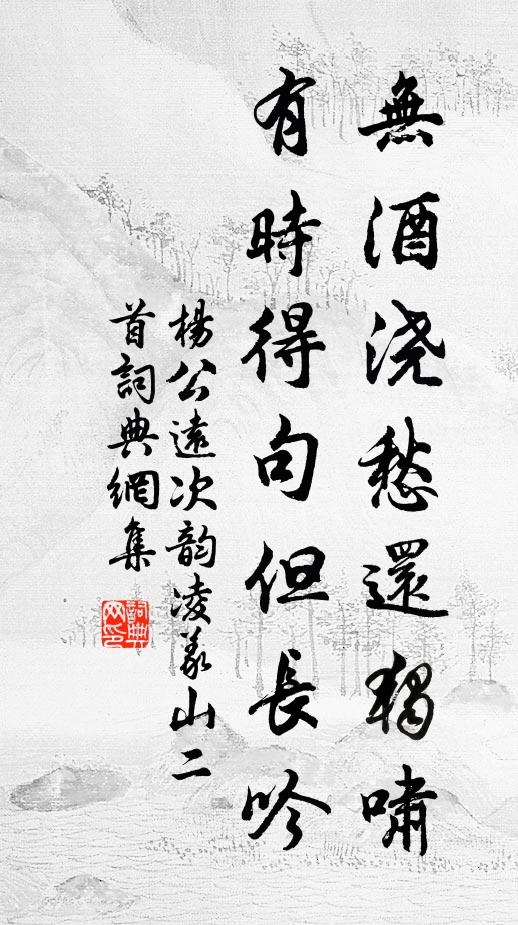 無酒浇愁還獨嘯
有時得句但長吟
楊公遠次韵凌義山二
首詞典網集
詞典
网印